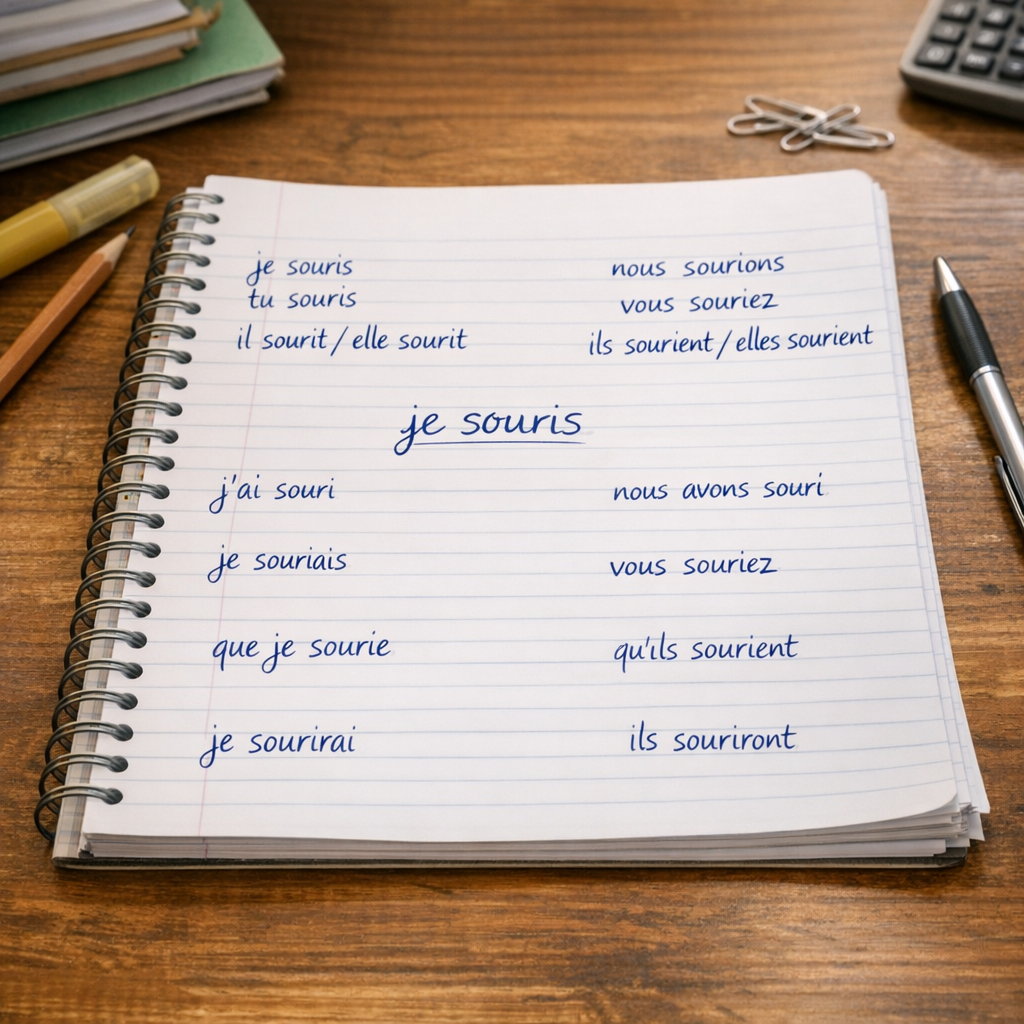 je souris nous sourions
tu souris vous souriez
il sourit / elle sourit ils sourient / elles sourient
je souris
j'ai souri nous avons souri
je souriais vous souriez
que je sourie qu'ils sourient
je sourirai ils souriront